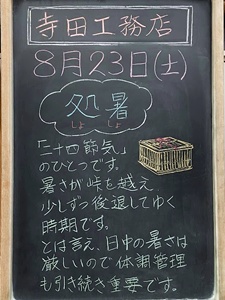 寺田工務店
8月23日(土)
処暑
しょ しょ
「二十四節気」
のひとつです。
暑さが峠を越え
少しずつ後退してゆく
時期です。
とは言え、日中の暑さは
厳しいので体調管理
も引き続き重要です。